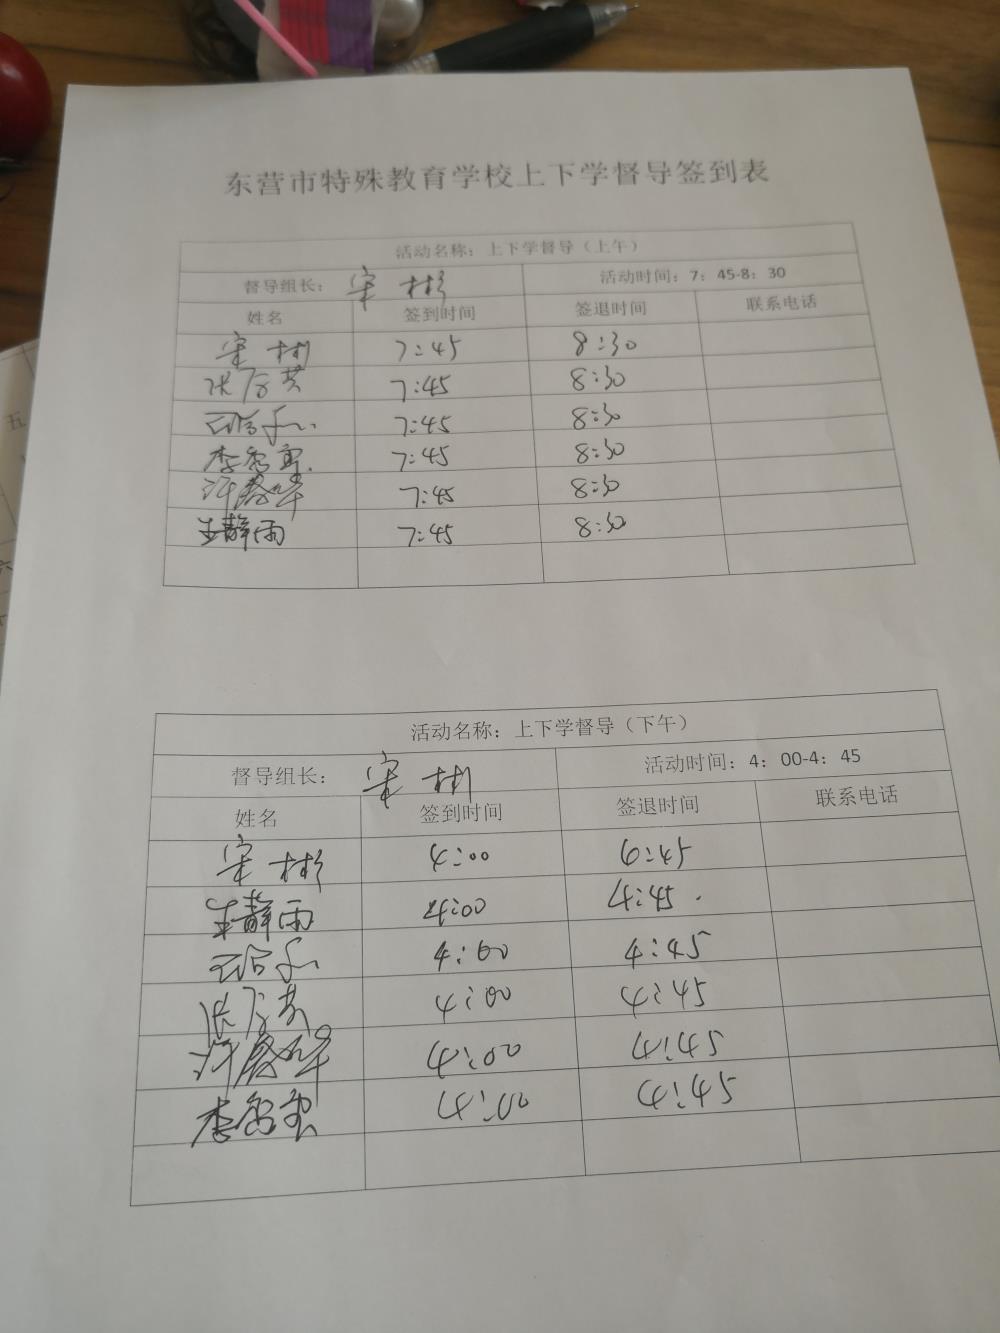 东营市特殊教育学校上下学督导签到表
活动名称：上下学督导（上午）
督导组长：宋彬 活动时间：7：45-8：30
姓名 签到时间 签退时间 联系电话
宋彬 7:45 8:30
7:45 8:30
7:45 8:30
7:45 8:30
7:45 8:30
王静雨 7:45 8:30
活动名称：上下学督导（下午）
督导组长：宋彬 活动时间：4：00-4：45
姓名 签到时间 签退时间 联系电话
宋彬 4:00 6:45
王静雨 4:00 4:45
4:00 4:45
4:00 4:45
4:00 4:45
4:00 4:45
五
六